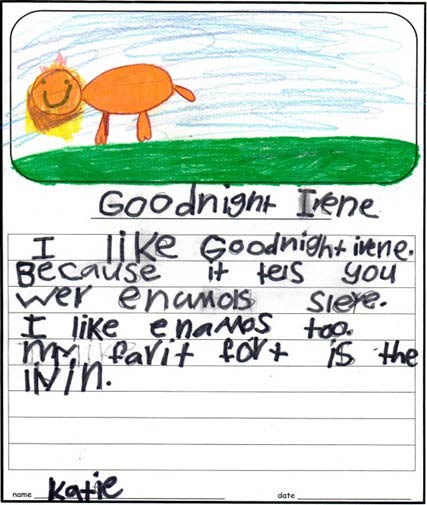 Goodnight Irene
I like Goodnight irene.
Because it tels you
wer enamols sleye.
I like enamos too.
my farit fort is the
liyin.
name Katie date